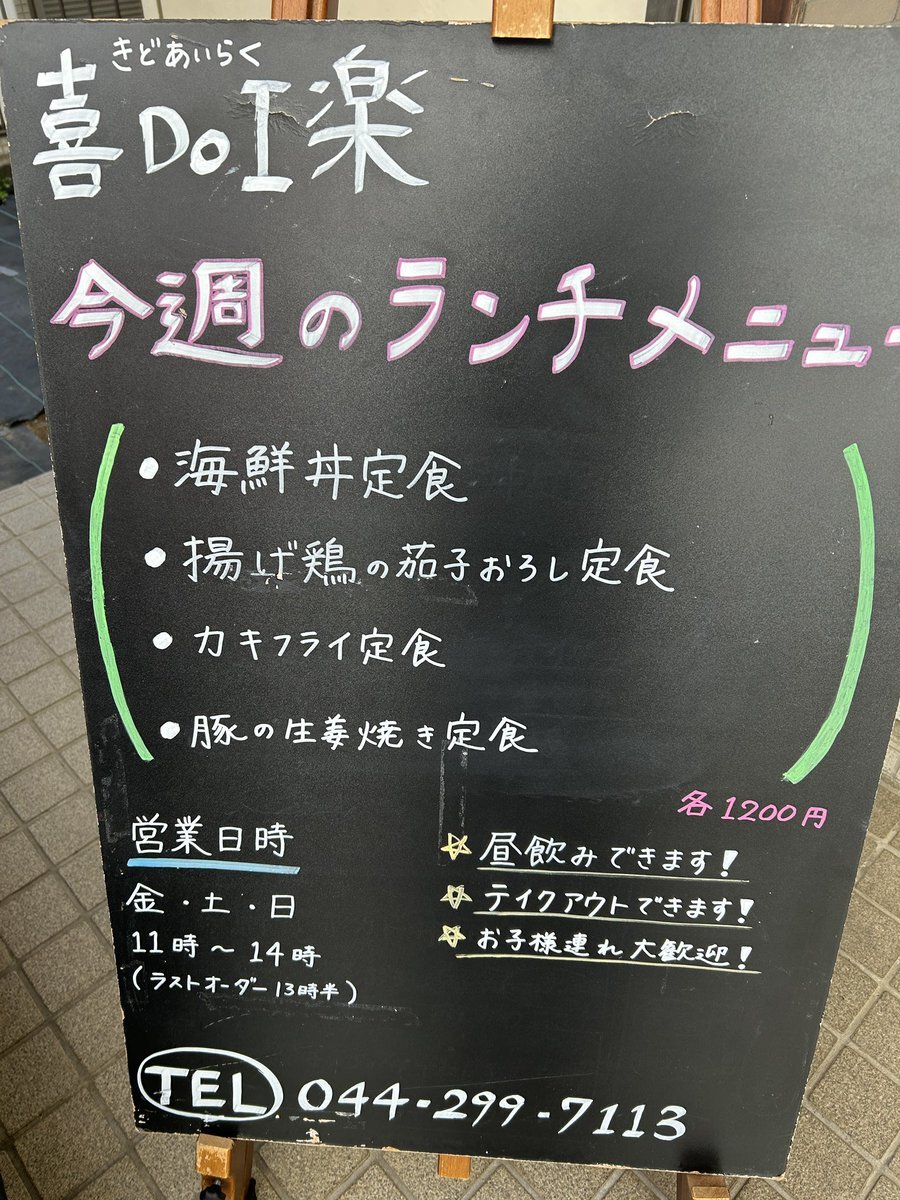 きどあいらく
喜DoI楽
今週のランチメニュー
・海鮮丼定食
・揚げ鶏の茄子おろし定食
・カキフライ定食
・豚の生姜焼き定食
各1200円
営業日時
金・土・日
11時〜14時
(ラストオーダー13時半)
☆昼飲みできます!
☆テイクアウトできます!
☆お子様連れ大歓迎!
TEL 044-299-7113